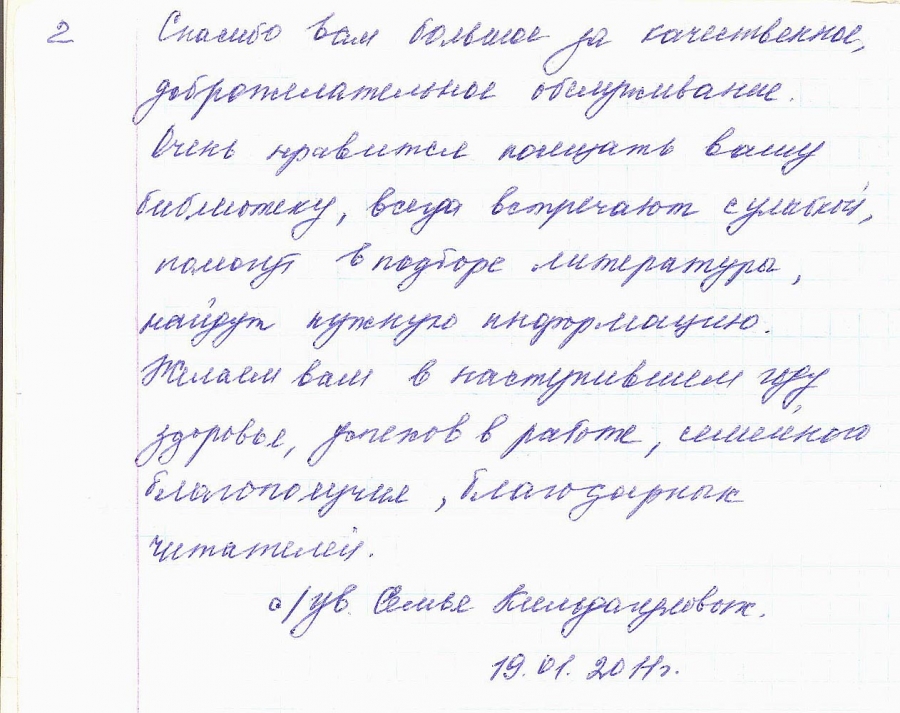 2 Спасибо вам большое за качественное,
доброжелательное обслуживание.
Очень нравится посещать вашу
библиотеку, всегда встречают с улыбкой,
помогут в подборе литературы,
найдут нужную информацию.
Желаем вам в наступившем году
здоровье, успехов в работе, семейного
благополучия, благодарных
читателей.
с/ув. Семья Кильдаузовых.
19.01.2011г.